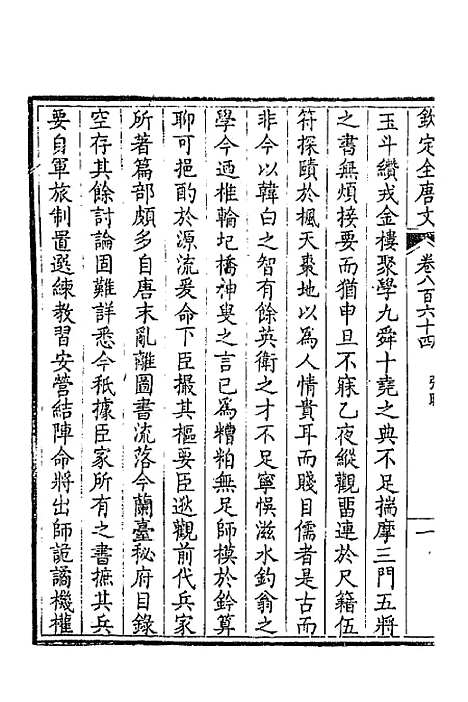 欽定全唐文 卷八百六十四 張昭 一
玉斗纘戎金樓聚學九舜十堯之典不足揣摩三門五將
之書無煩接要而猶申旦不寐乙夜縱觀畱連於尺籍伍
符探賾於楓天棗地以為人情貴耳而賤目儒者是古而
非今以韓白之智有餘英衛之才不足寧悞滋水釣翁之
學今迺椎輪圯橋神叟之言已為糟粕無足師模於鈐算
聊可挹酌於源流爰命下臣撮其樞要臣逖觀前代兵家
所著篇部頗多自唐末亂離圖書流落今蘭臺秘府目錄
空存其餘討論固難詳悉今秖據臣家所有之書摭其兵
要自軍旅制置選練教習安營結陣命將出師詭譎機權